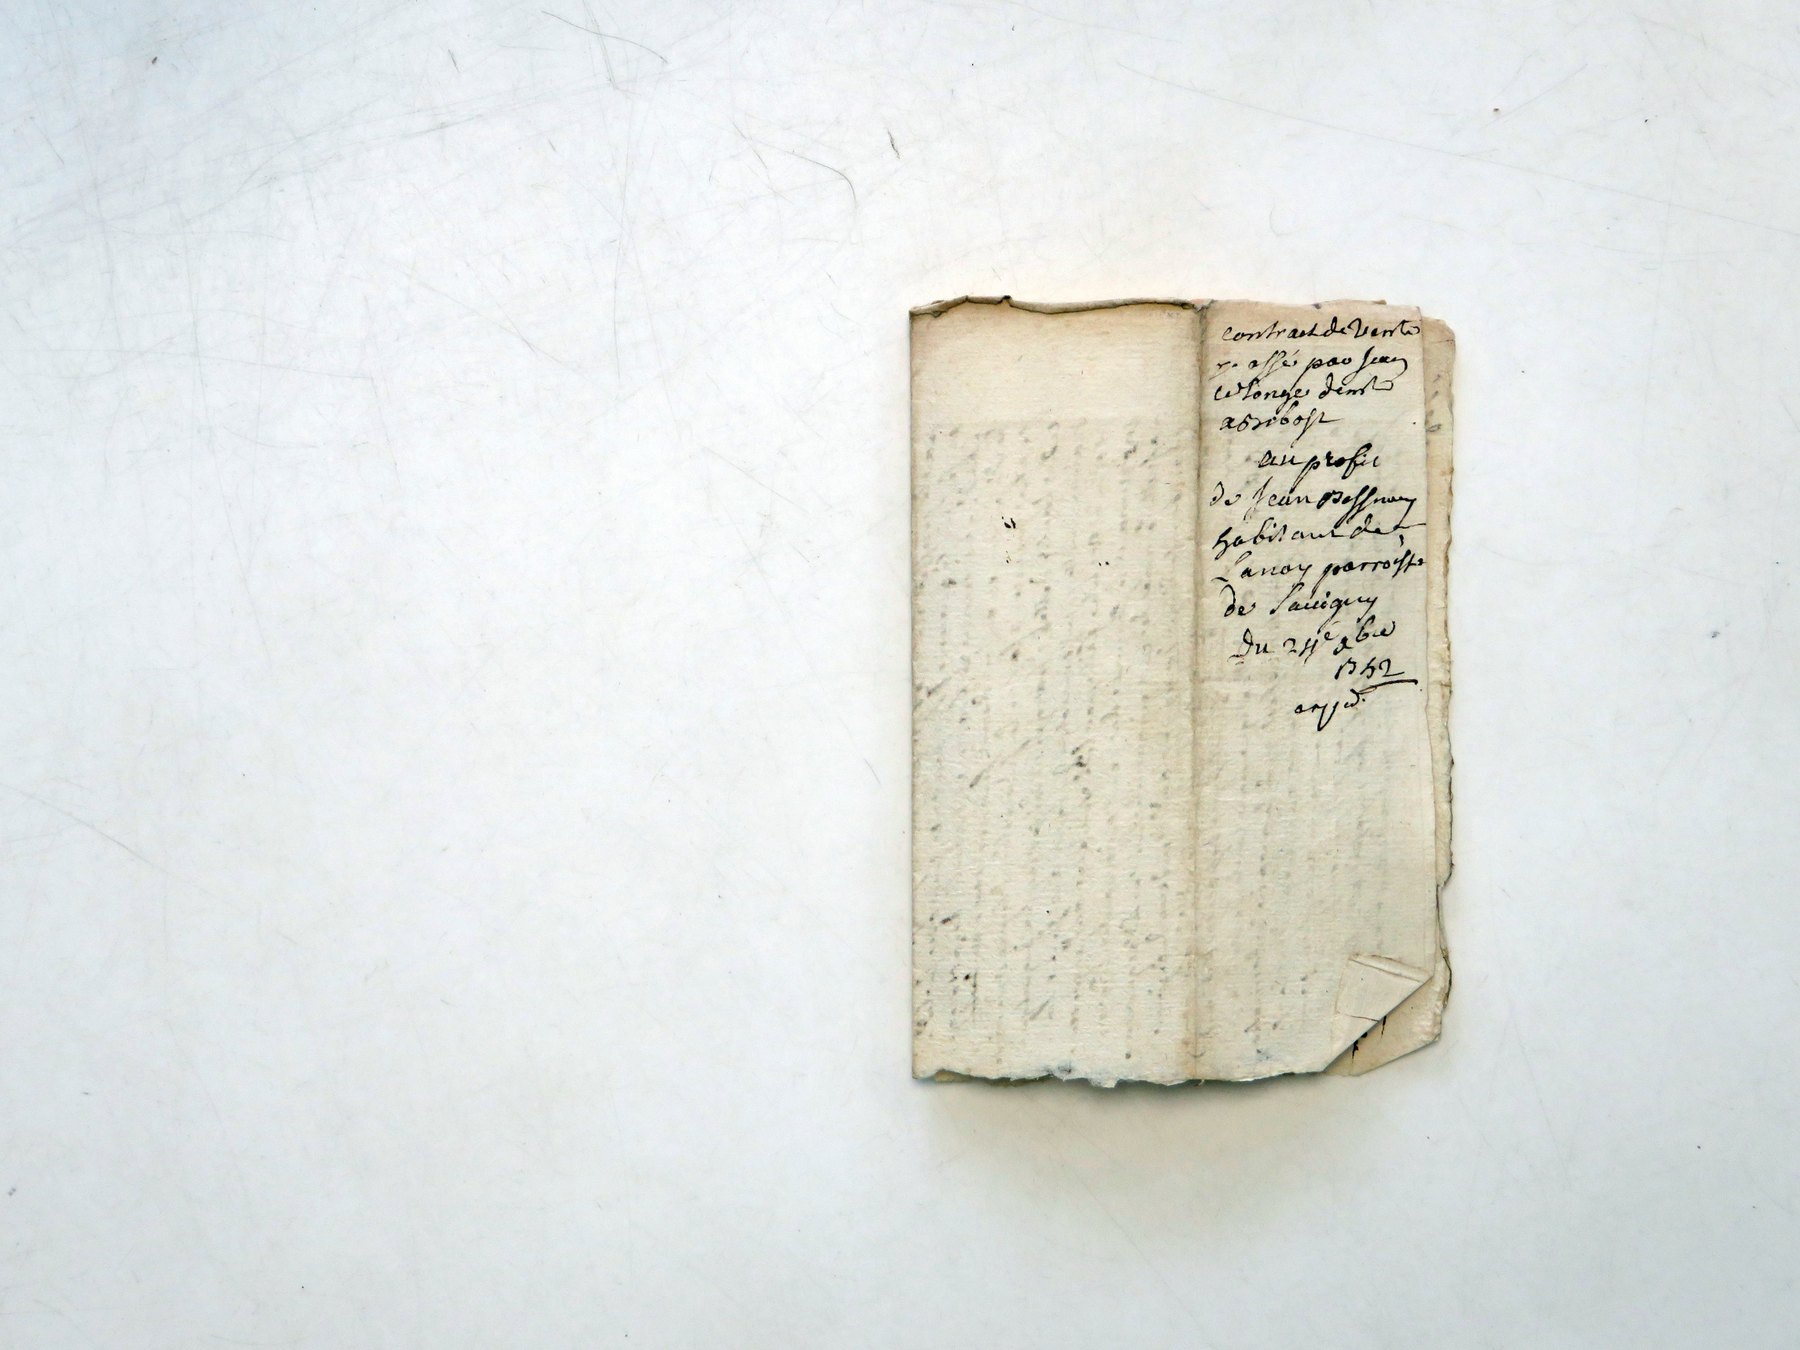 contract de vente
passé par Jean
Lelonge demt
a Bribost
au profit
de Jean
habitant de
Lanoy parroisse
de Sauigny
du 24e 9bre
1742